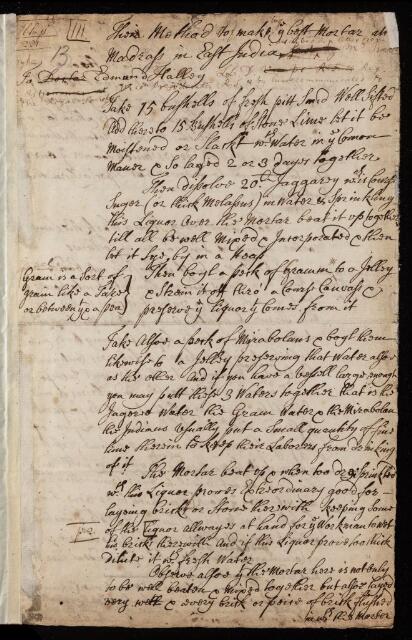 (11)
Their Method to make yͤ best Mortar at
Madrass in East India
13
To Doctor Edmund Halley
Take 15 bushells of fresh pitt Sand Well Sifted
Add thereto 15 Bushells of Stone Lime Let it be
Moistened or Slackt wᵗʰ Water in yͤ Comon
Maner & So layed 2 or 3 days together
Then dissolve 20ˡ Jaggarey wᶜʰ is Course
Suger (or thick Molasus) in Water & Sprinkling
this Liquor Over the Mortar beat it up together
till all be well Mixed & Incorporated & then
let it Lye by in a Heap
Gram is a Sort of
Grain like a Fatch
or between yͭ & a pea
Then boyl a peck of Gramm to a Jelley
& Strein it off thro' a Cours Canvass &
preserve yͤ Liquor yͭ Comes from it
Take Alsoe a peck of Mirabolans & boyl them
likewise to a Jelley preserving that Water alsoe
as the other And if you have a Vessell large enough
you may putt these 3 Waters together that is the
Jagerey Water the Gram Water & the Mirabolan
the Indians Usually put a Small quantity of fine
lime therein to keep their Laborers from drinking
of it
The Mortar beat up & when too dry Sprinkled
wᵗʰ this Liquor proves Extraordinary good for
laying brick or Stone therewith keeping Some
of the Liquor allwayes at hand for yͤ Workman to wet
his bricks therewith And if this Liquor prove too thick
dilute it wᵗʰ fresh Water
Observe alsoe yͭ the Mortar here is not only
to be well beaten & Mixed together but alsoe layed
very well & every brick or peice of brick flushed
in wᵗʰ the Mortar